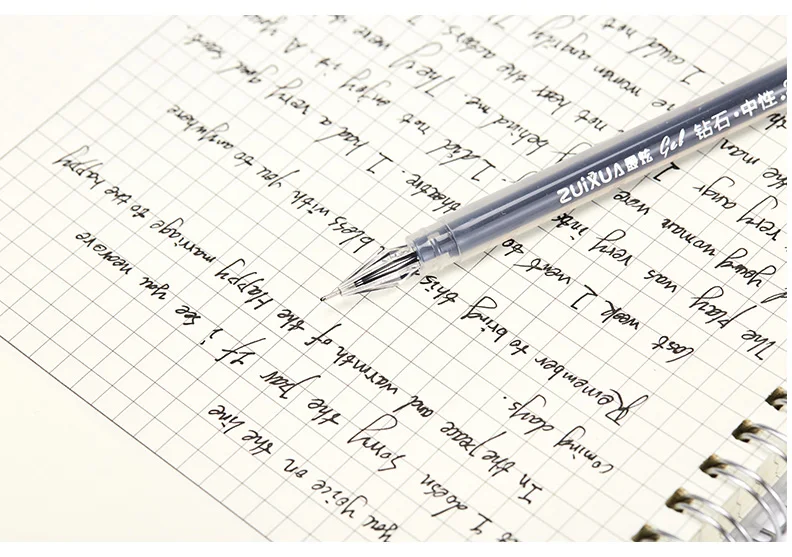 you voice on the line
I doesn Sorry the paw If i see you
In the peace and warmth of the Happy marriage to the happy
coming days.
Remember to bring this bless with you to anywhere
last week I went to theatre. I had a very good seat.
The play was very inte I did not enjoy it. A
young woman were behind me. They were
very angr not hear the actors. I
the man woman angrily
I could not
ZUiXUA 最炫 Gel 钻石·中性